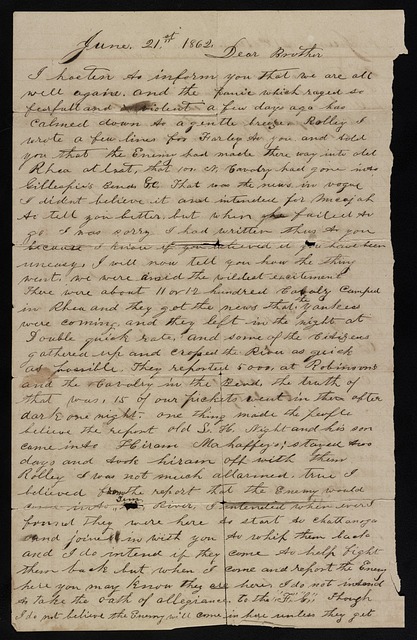 June, 21st 1862. Dear Brother
I hasten to inform you that we are all
well again. and the panic which raged so
fearfull and violent a few days ago has
calmed down to a gentle breeze Rolley I
wrote a few lines for Farley to you and told
you that the Enemy had made there way into old
Rhea at last, that 100 N. Cavalry had gone into
Gillespie's Bend &c. That was the news in vogue
I dident believe it and intended for
to tell you better. but when he failed to
go. I was sorry I had written thus to you
because I know if you believed it you have been
uneasy, I will now tell you how the thing
went. we were the wildest excitement
There were about 11 or 12 hundred Cavalry Camped
in Rhea and they got the news that the Yankees
were coming and they left in the night at
Double quick rate, and some of the Citizens
gathered up and crossed the River as quick
as possible. They reported 5000 at Robinsons
and the Cavalry in the Bend, the truth of
that was, 15 of our pickets went in there after
dark one night. one thing made the people
believe the report old S. H. Night and his son
came into Hiram Mahaffeys; stayed two
days and took hiram off with them
Rolley I was not much allarmed. true I
believed from the report that the Enemy would
come River, I intended when ever I
found they were here to start to chattanooga
and joine in with you to whip them back
and I do intend if they come to help fight
them back but when I come and report the Enemy
here you may know they are here. I do not intend
to take the oath of allegiance to the Though
I do not believe the Enemy will come in here unless they get